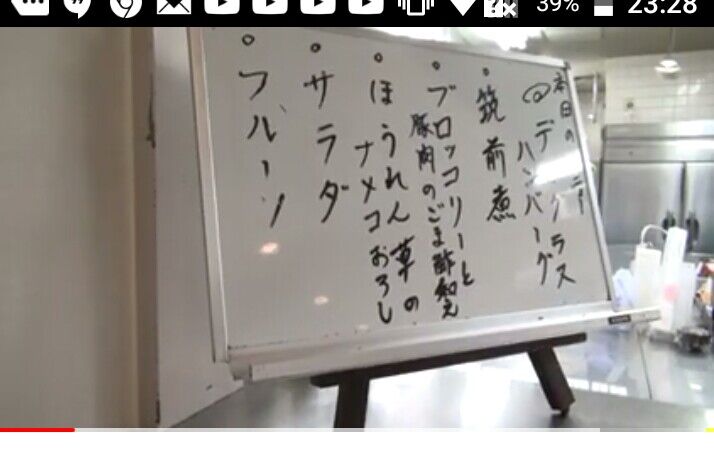 39% 23:28
本日の
@デミグラス
ハンバーグ
・筑前煮
・ブロッコリーと
豚肉のごま酢和え
・ほうれん草の
ナメコおろし
・サラダ
・フルーツ